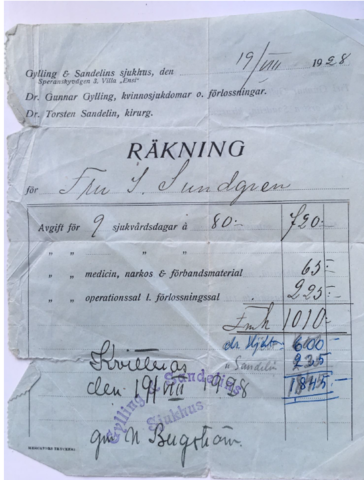 Gylling & Sandelins sjukhus, den 19/VIII 1928
Speranskyvägen 3, Villa „Ensi"
Dr. Gunnar Gylling, kvinnosjukdomar o. förlossningar.
Dr. Torsten Sandelin, kirurg.
RÄKNING
för Fru S. Sundgren
Avgift för 9 sjukvårdsdagar à 80:- 720:-
„ „ „ „
„ „ medicin, narkos & förbandsmaterial 65:-
„ „ operationssal l. förlossningssal 225:-
Fmk 1010:-
dr. 600
„ Sandelin 235
1845:-
Kvitteras
den 19/VIII 1928
Gylling Sandelins
Sjukhus
gm N